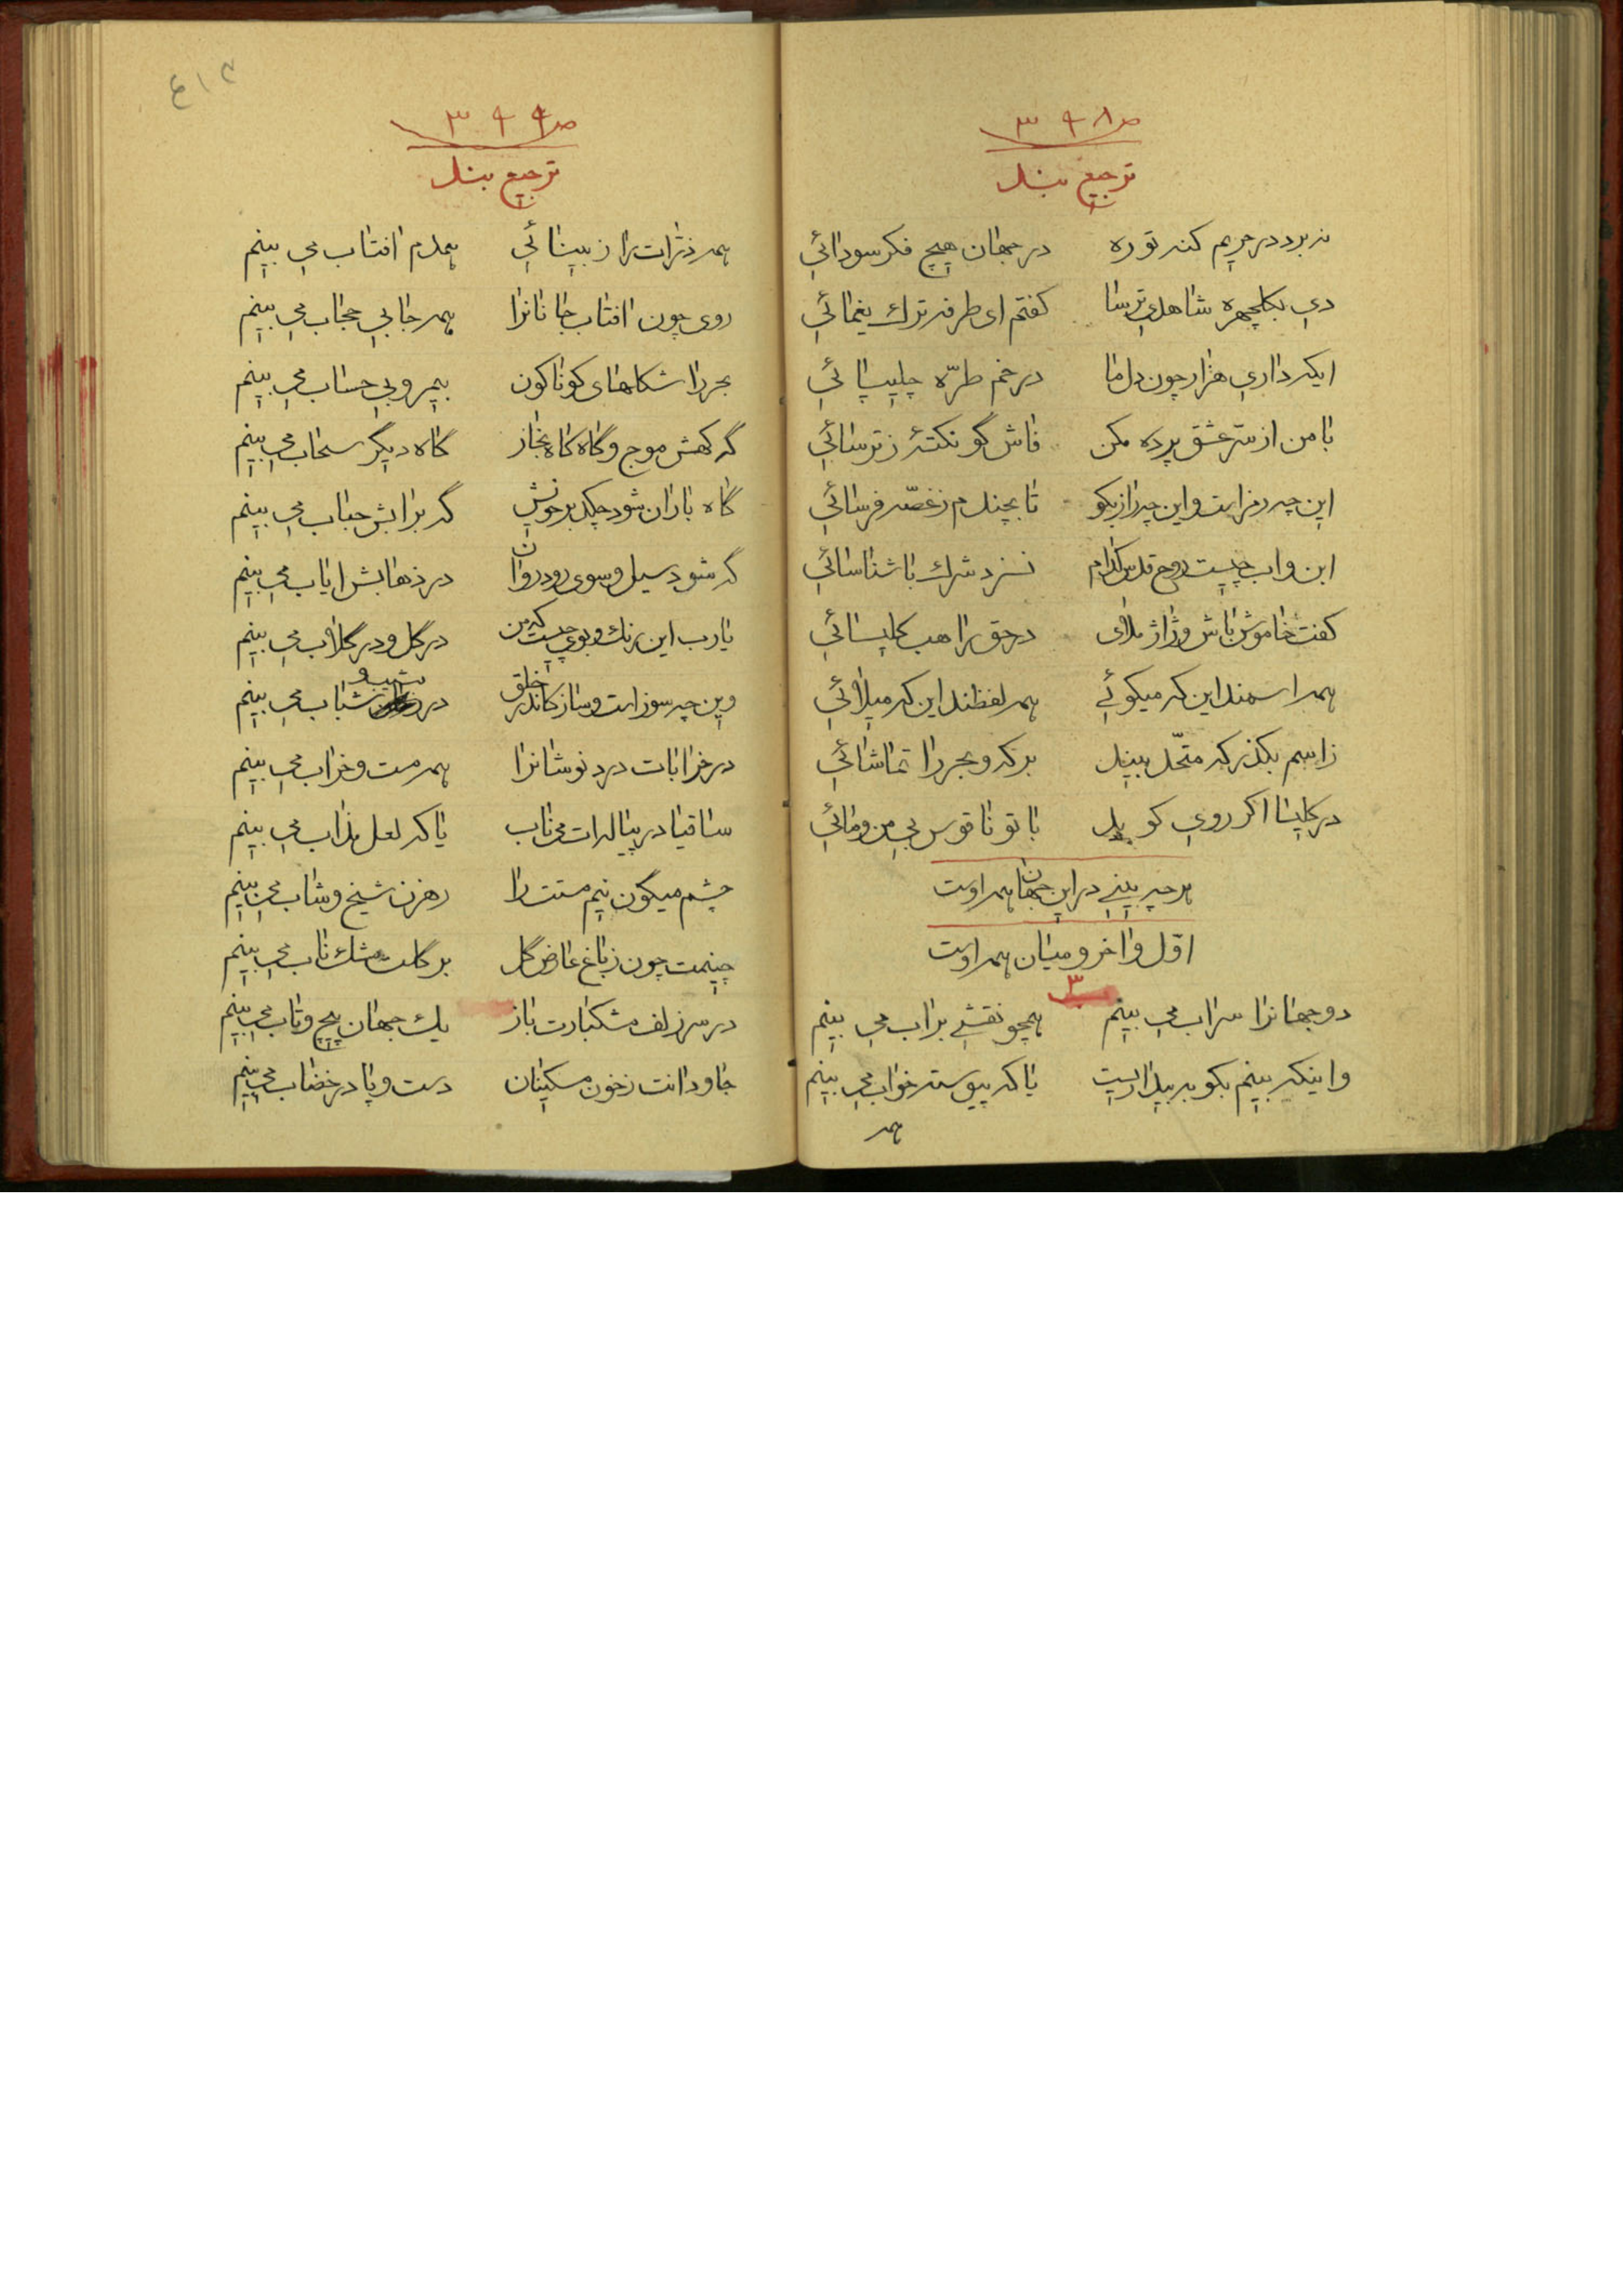 ص ٣٩٨
ترجیع بند
نبرد در حریم کنه تو ره    در جهان هیچ فکر سودائی
دی بگلچهره شاهدی ترسا    کفتم ای طرفه ترک یغمائی
ایکه داری هزار چون دل ما    در خم طرّه چلیپائی
با من از سرّ عشق پرده مکن    فاش گو نکتهٔ ز ترسائی
این چه رمزاست و این چه راز بکو    تا بچندم ز غصّه فرسائی
ابن و اب چیست روح قدس کدام    نسزد شرک با شناسائی
کفت خاموش باش و ژاژ ملای    در حق راهب کلیسائی
همه اسمند این که میکوئی    همه لفظند این که میلائی
ز اسم بکذر که متّحد بیند    بر که و بحر را تماشائی
در کلیسا اکر روی کوید    با تو ناقوس بی من و مائی
هر چه بینی در این جهان همه اوست
اوّل و اخر و میان همه اوست
٣
دو جهانرا سراب می بینم    همچو نقشی بر اب می بینم
واینکه بینم بکو به بیداریست    یا که پیوسته خواب می بینم
همه
٤١٢
ص ٣٩٩
ترجیع بند
همه ذرّات را ز بینائی    همدم افتاب می بینم
روی چون افتاب جانانرا    همه جا بی حجاب می بینم
بحر را شکلهای کوناکون    بیمر و بی حساب می بینم
گه کهش موج و گاه کاه بخار    گاه دیگر سحاب می بینم
گاه باران شود چکد بر خویش    گه بر ابش حباب می بینم
گه شود سیل و سوی رود روان    در ذهابش ایاب می بینم
یارب این رنک و بوی چیست که من    در گل و در گلاب می بینم
وین چه سوز است و ساز کاندر خلق    در شیب و شباب می بینم
در خرابات درد نوشانرا    همه مست و خراب می بینم
ساقیا در پیاله ات می ناب    یا که لعل مذاب می بینم
چشم میگون نیم مستت را    رهزن شیخ و شاب می بینم
چینمت چون ز باغ عارض گل    بر گلت مشک ناب می بینم
در سر زلف مشکبارت باز    یک جهان پیچ و تاب می بینم
جاودانت ز خون مسکینان    دست و پا در خضاب می بینم